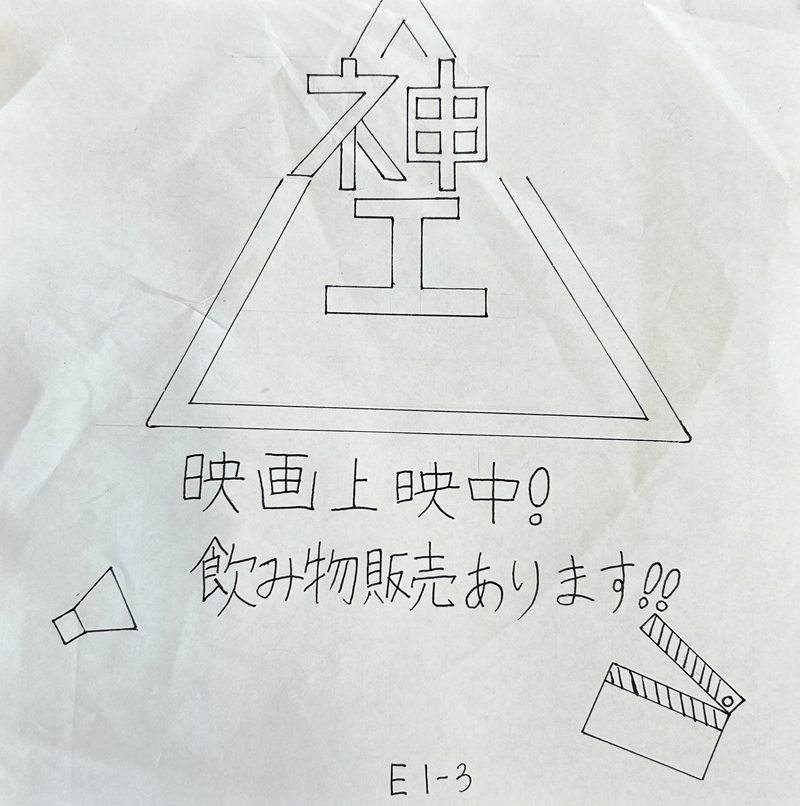 神
工
映画上映中!
飲み物販売あります!!
E1-3